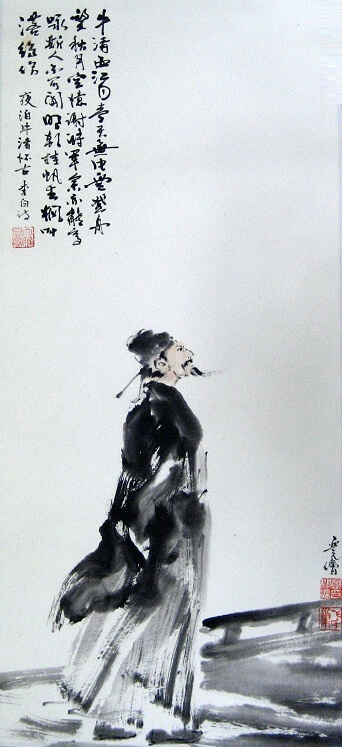 牛渚西江夜青天無片雲登舟
望秋月空憶謝將軍余亦能高
詠斯人不可聞明朝挂帆去楓葉
落紛紛
夜泊牛渚怀古 李白诗